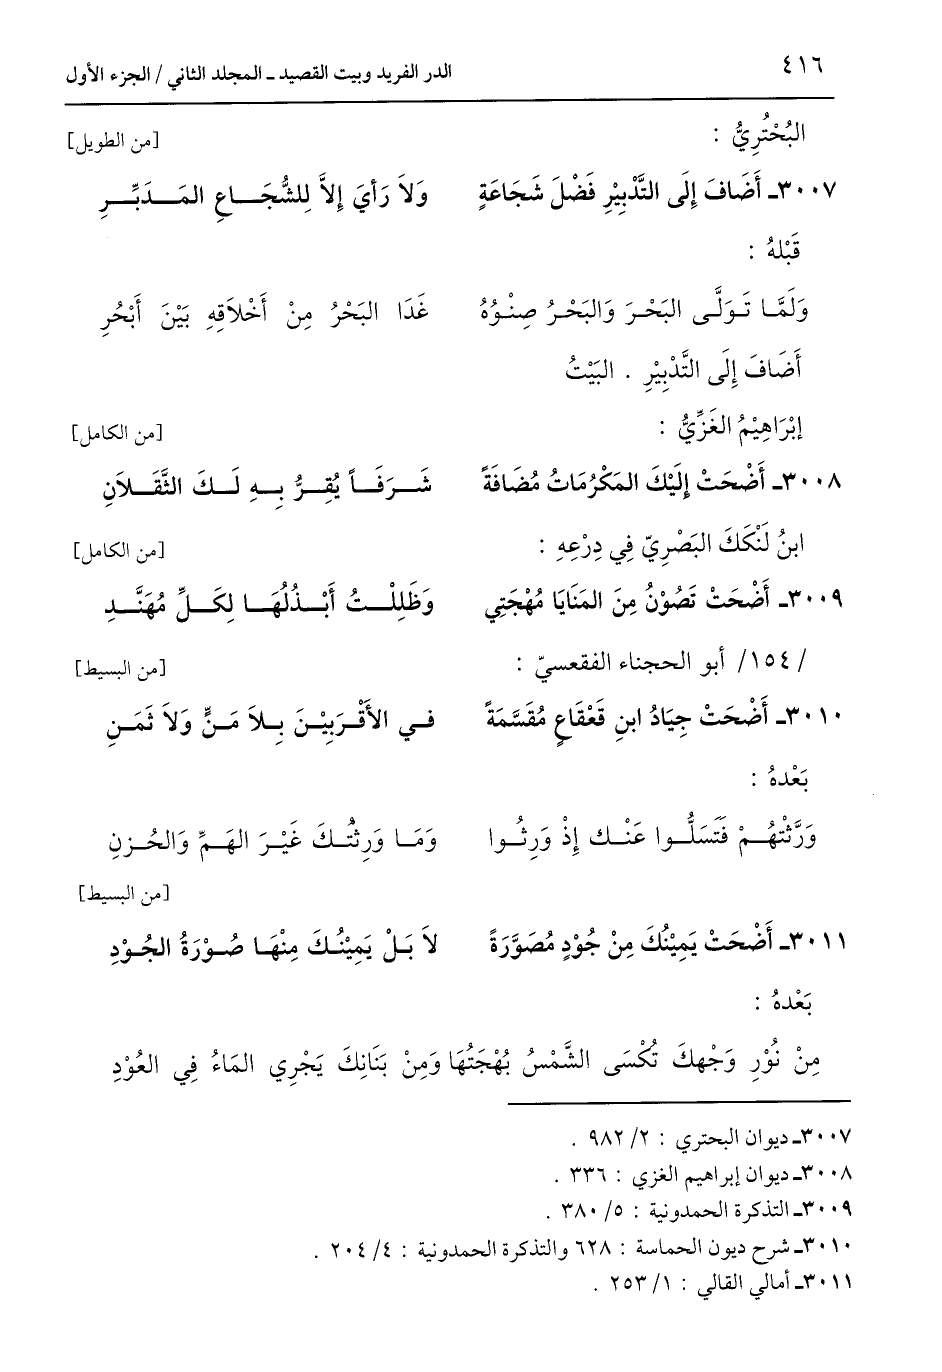 ٤١٦ الدر الفريد وبيت القصيد ـ المجلد الثاني / الجزء الأول
البُحْتُرِيُّ : [من الطويل]
٣٠٠٧ـ أَضَافَ إِلَى التَّدْبِيْرِ فَضْلَ شَجَاعَةٍ وَلاَ رَأيَ إِلاَّ لِلشُّجَـــاعِ المَـــدَبِّـــرِ
قَبْلهُ :
وَلَمَّـا تَـوَلَّـى البَحْـرَ وَالبَحْـرُ صِنْـوُهُ غَدَا البَحْرُ مِنْ أَخْلاَقِهِ بَيْنَ أَبْحُرِ
أَضَافَ إِلَى التَّدْبِيْرِ . البَيْتُ
إِبْرَاهِيْمُ الغَزِّيُّ : [من الكامل]
٣٠٠٨ـ أَضْحَتْ إِلَيْكَ المَكْرُمَاتُ مُضَافَةً شَــرَفَــاً يُقِــرُّ بِــهِ لَــكَ الثَّقَــلاَنِ
ابنُ لَنْكَكَ البَصْرِيّ فِي دِرْعِهِ : [من الكامل]
٣٠٠٩ـ أَضْحَتْ تَصُوْنُ مِنَ المَنَايَا مُهْجَتِي وَظَلِلْــتُ أَبْــذُلُهَــا لِكَــلِّ مُهَنَّــدِ
/١٥٤/ أبو الحجناء الفقعسيّ : [من البسيط]
٣٠١٠ـ أَضْحَتْ جِيَادُ ابنِ قَعْقَاعٍ مُقَسَّمَةً فــي الأَقْــرَبِيْــنَ بِــلاَ مَــنٍّ وَلاَ ثَمَــنِ
بَعْدهُ :
وَرَّثْتُهــمْ فَتَسَلُّــوا عَنْــك إِذْ وَرِثُــوا وَمَــا وَرِثُتُــكَ غَيْــرَ الهَــمِّ وَالحُــزنِ
[من البسيط]
٣٠١١ـ أَضْحَتْ يَمِيْنُكَ مِنْ جُوْدٍ مُصَوَّرَةً لاَ بَــلْ يَمِيْنُــكَ مِنْهَــا صُــوْرَةُ الجُــوْدِ
بَعْدهُ :
مِنْ نُوْرِ وَجْهكَ تُكْسَى الشَّمْسُ بُهْجَتُهَا وَمِنْ بَنَانِكَ يَجْرِي المَاءُ فِي العُوْدِ
٣٠٠٧ـ ديوان البحتري : ٢/ ٩٨٢ .
٣٠٠٨ـ ديوان إبراهيم الغزي : ٣٣٦ .
٣٠٠٩ـ التذكرة الحمدونية : ٥/ ٣٨٠ .
٣٠١٠ـ شرح ديون الحماسة : ٦٢٨ والتذكرة الحمدونية : ٤/ ٢٠٤ .
٣٠١١ـ أمالي القالي : ١/ ٢٥٣ .